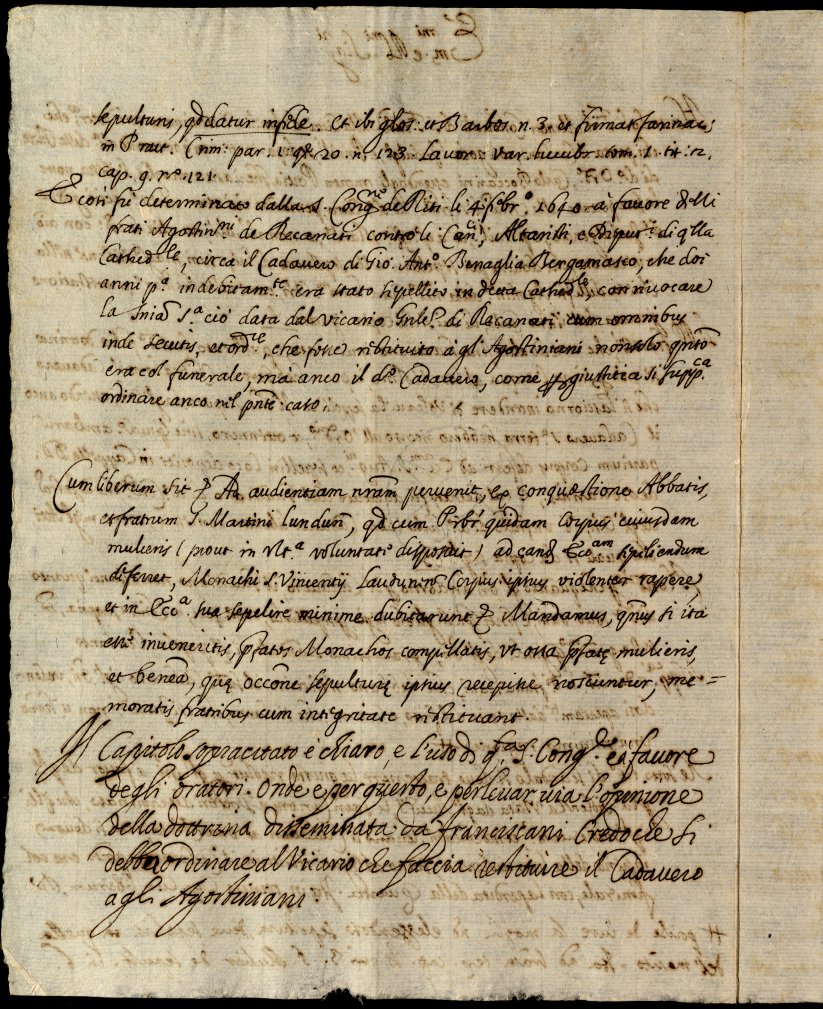 sepulturis, qd datur infide. et ibi glos. et Barbos. n. 3. et firmat farinac:
in Pract. Crim: par. 1. q. 20. n. 123. Lavor. var. lucubr. tom. 1. tit. 12.
cap. 9. nº. 121.
E così fù determinato dalla S. Congne de Riti li 4. febrº. 1640. à favore delli
frati Agostinni de Recanati contro li Cancj, Altaristi, e Disputi. di qlla
Cathedle, circa il Cadavero di Gio. Antº. Benaglia Bergamasco, che doi
anni pª. indebitamte era stato sepellito in detta Cathedle con rivocare
la Snia sª ciò data dal vicario Gnle. di Recanati cum omnibus
inde secutis, et ordle, che fosse restituito à gl'Agostiniani non solo qnto
era col funerale, mà anco il dº. Cadavero, come p giustitia si suppca
ordinare anco nel pnte caso.
Cum liberum sit & Ad audientiam nram pervenit, ex conquæstione Abbatis,
et fratrum S. Martini laudun, qd cum Prbr quidam corpus cuiusdam
mulieris (prout in vltª voluntate disposuit) ad eand Eccam sepeliendum
deferret, Monachi S. Vincentij Laudunen Corpus ipsius violenter rapere,
et in Eccª sua sepelire minime dubitarunt & Mandamus, qnus si ita
esse inveneritis, pfatos Monachos compellatis, vt ossa pfatę mulieris,
et beneã, quę occone sepulturę ipsius recepisse noscuntur, me=
moratis fratribus cum integritate restituant.
Il Capitolo sopracitato è chiaro, e l'uso di qfa S. Congne è à favore
degli oratori. Onde e per questo, e per levar via l'opinione
della dottrina disseminata da franciscani Credo che si
debba ordinare al Vicario che faccia restituire il Cadavero
agli Agostiniani.